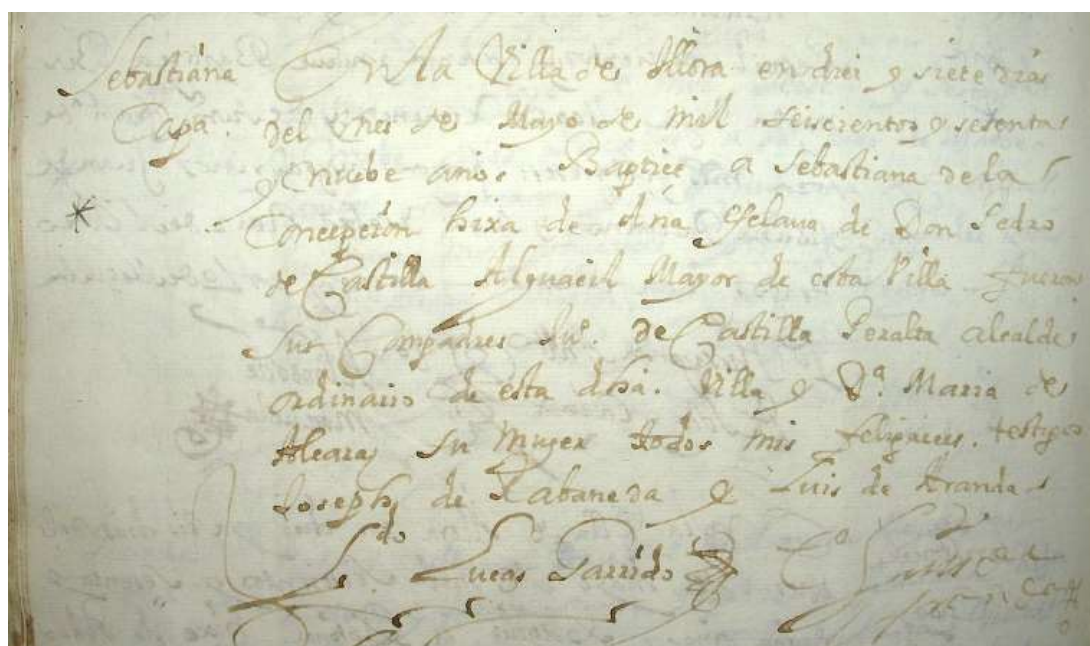 Sebastiana En la Villa de Yllora en diei y siete dias
Capa. del mes de Mayo de mill seiscientos y setenta
y nuebe anos Baptice a Sebastiana de la
Concepcion hixa de Ana esclaua de Don Pedro
de Castilla Alguacil Mayor de esta Villa fueron
sus Compadres Ju°. de Castilla Peralta alcalde
ordinario de esta dha. Villa y Dª. Maria de
Alcaraz su muger todos mis feligreses. testigos
Joseph de Rabaneda y Luis de Aranda
Ldo Lucas Garrido